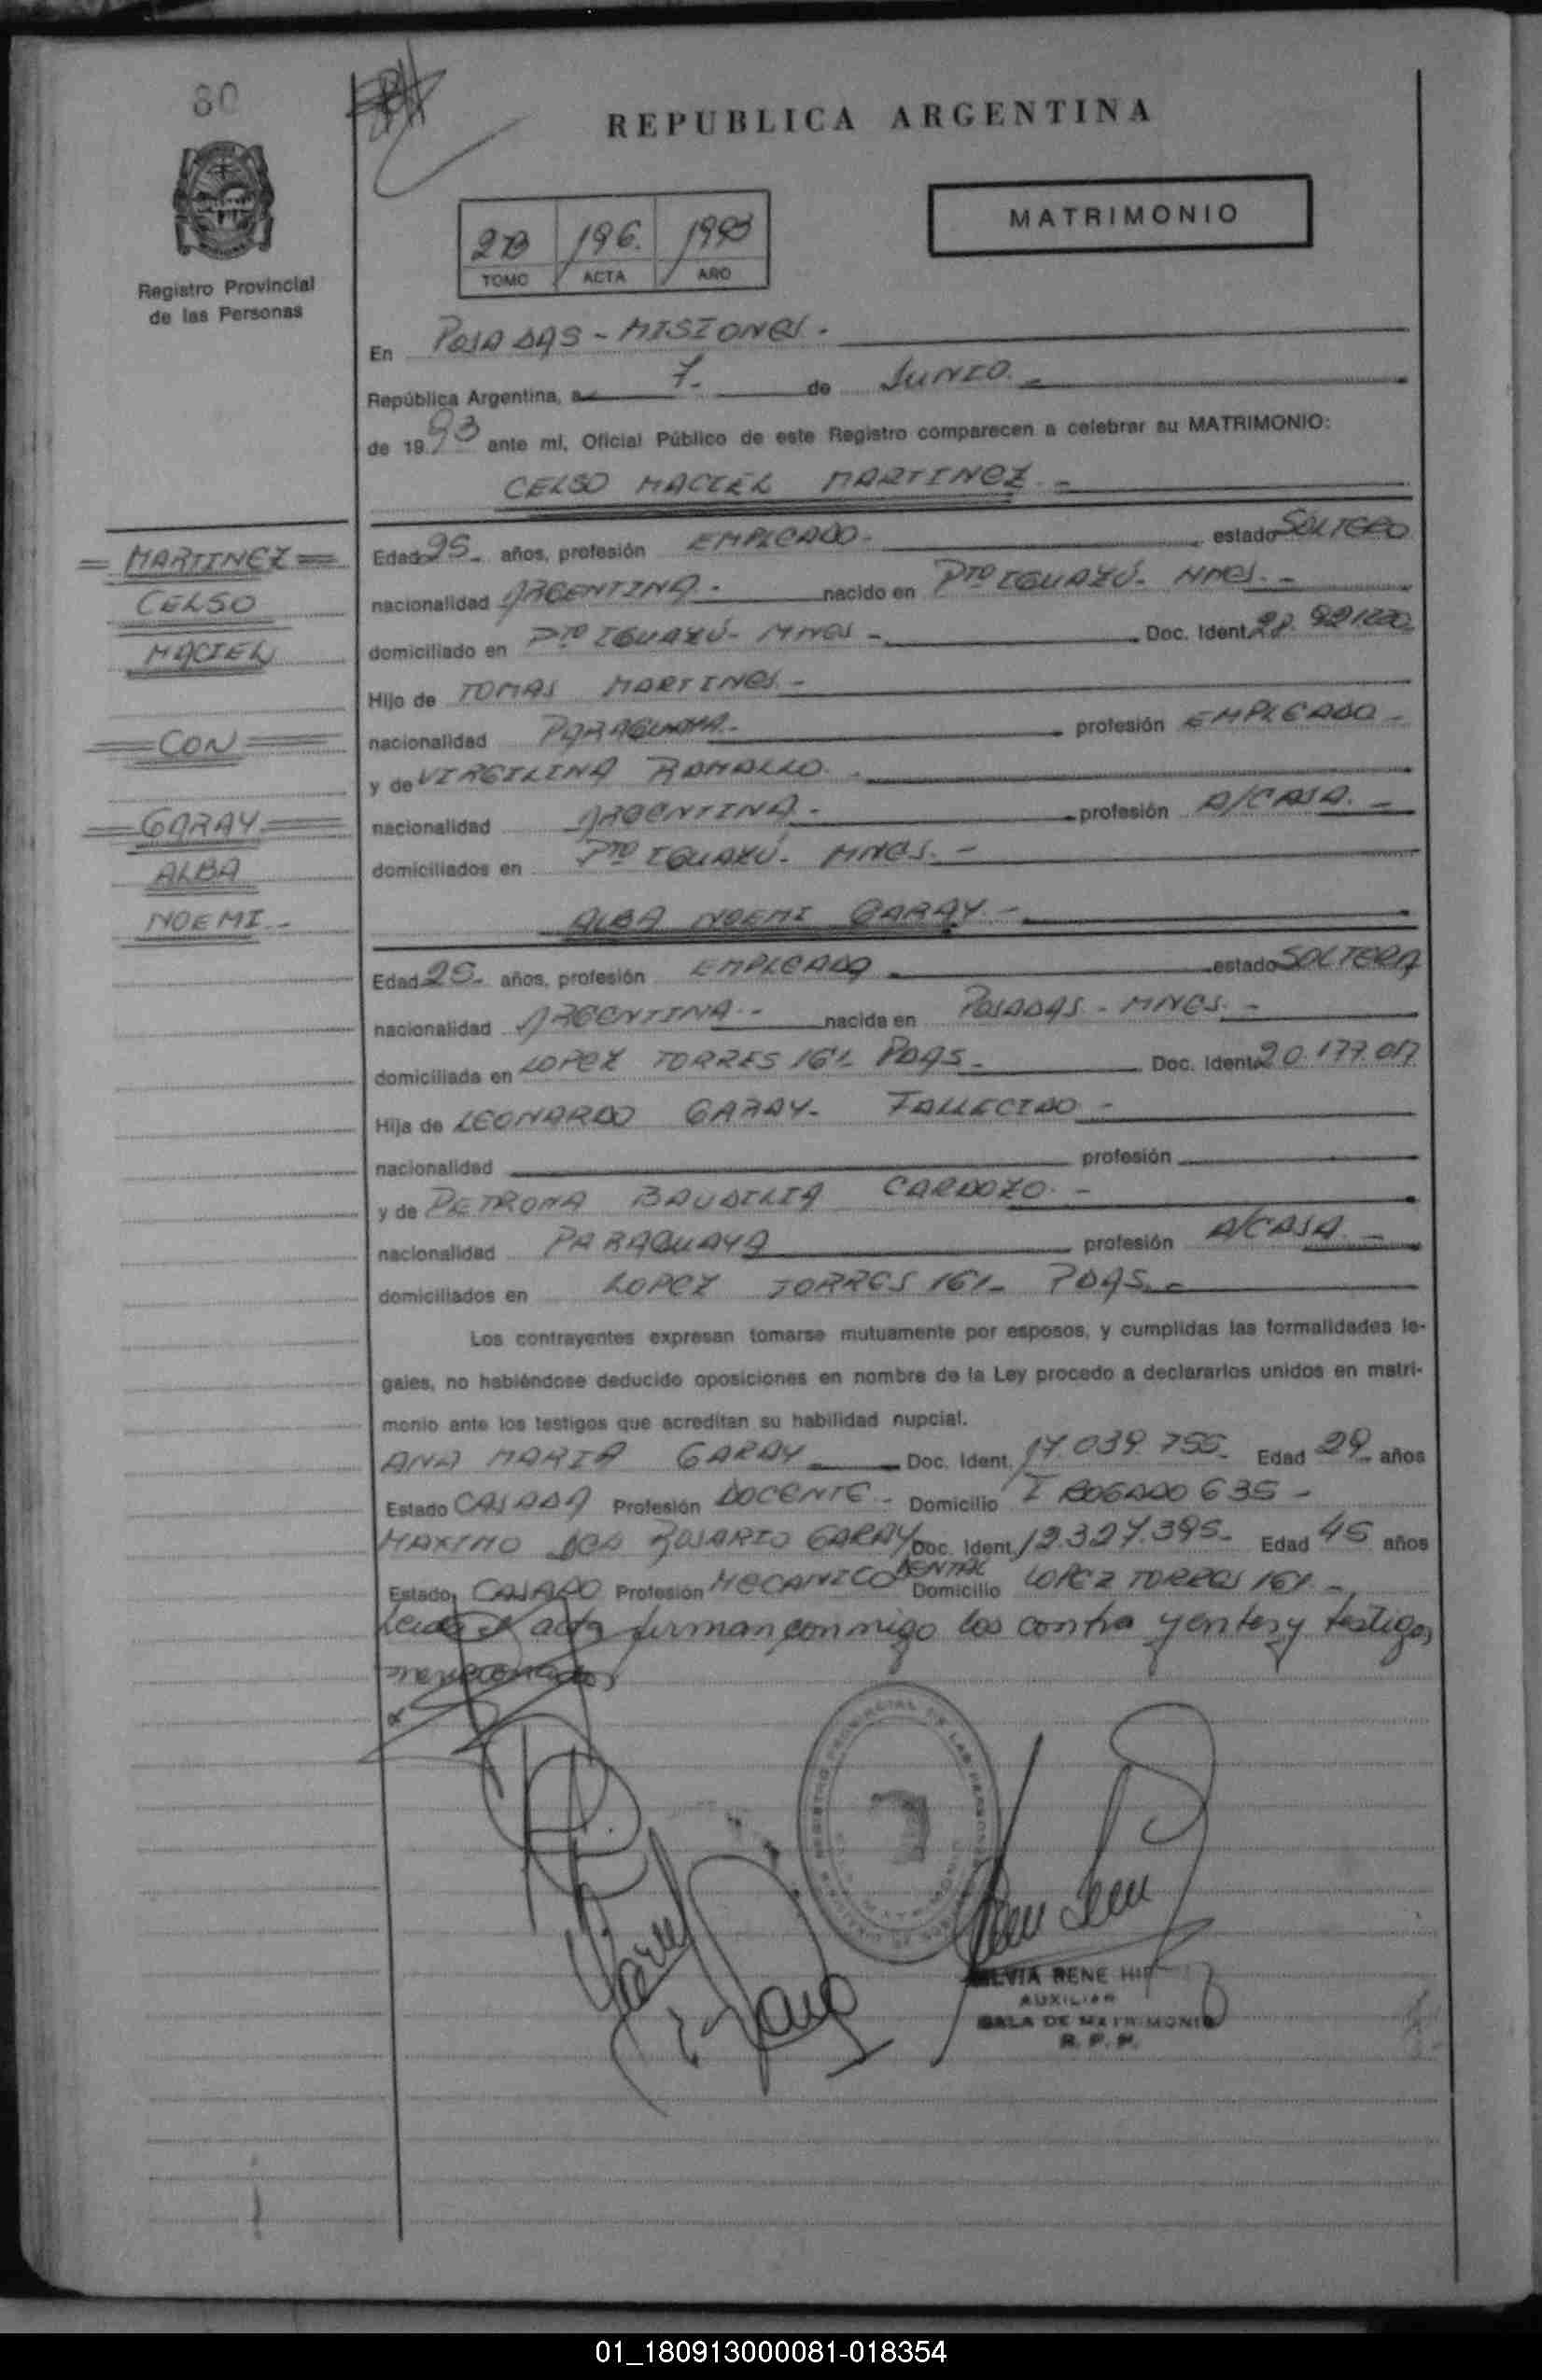 80
REPUBLICA ARGENTINA
MATRIMONIO
2B 196. 1993
TOMO ACTA AÑO
Registro Provincial
de las Personas
En POSADAS - MISIONES.
República Argentina, a 7. de JUNIO. -
de 1993 ante mí, Oficial Público de este Registro comparecen a celebrar su MATRIMONIO:
CELSO MACIEL MARTINEZ. -
= MARTINEZ =
CELSO
MACIEL
= CON =
= GARAY =
ALBA
NOEMI. -
Edad 25- años, profesión EMPLEADO. estado SOLTERO
nacionalidad ARGENTINA. nacido en Pto IGUAZÚ- MNES. -
domiciliado en Pto IGUAZÚ- MNES - Doc. Ident.
Hijo de TOMAS MARTINES. -
nacionalidad PARAGUAYA. profesión EMPLEADO -
y de VIRGILINA RAMALLO.
nacionalidad ARGENTINA. profesión A/CASA. -
domiciliados en Pto IGUAZÚ- MNES. -
ALBA NOEMI GARAY. -
Edad 25- años, profesión EMPLEADA estado SOLTERA
nacionalidad ARGENTINA. - nacida en POSADAS - MNES. -
domiciliada en LOPEZ TORRES 161- PDAS- Doc. Ident. 20.177.017
Hija de LEONARDO GARAY- FALLECIDO -
nacionalidad profesión
y de PETRONA BAUDILIA CARDOZO. -
nacionalidad PARAGUAYA profesión A/CASA. -
domiciliados en LOPEZ TORRES 161- PDAS. -
Los contrayentes expresan tomarse mutuamente por esposos, y cumplidas las formalidades le-
gales, no habiéndose deducido oposiciones en nombre de la Ley procedo a declararlos unidos en matri-
monio ante los testigos que acreditan su habilidad nupcial.
ANA MARIA GARAY Doc. Ident. 17.039.755- Edad 29- años
Estado CASADA Profesión DOCENTE - Domicilio I ROGADO 635 -
MAXIMO DEL ROSARIO GARAY Doc. Ident. 12.327.395- Edad 45 años
Estado CASADO Profesión MECANICO DENTAL Domicilio LOPEZ TORRES 161 -
Leida el acta firman conmigo los contrayentes y testigos
mencionados
REGISTRO PROVINCIAL DE LAS PERSONAS
SILVIA RENE
AUXILIAR
SALA DE MATRIMONIO
R. P. P.
01_180913000081-018354